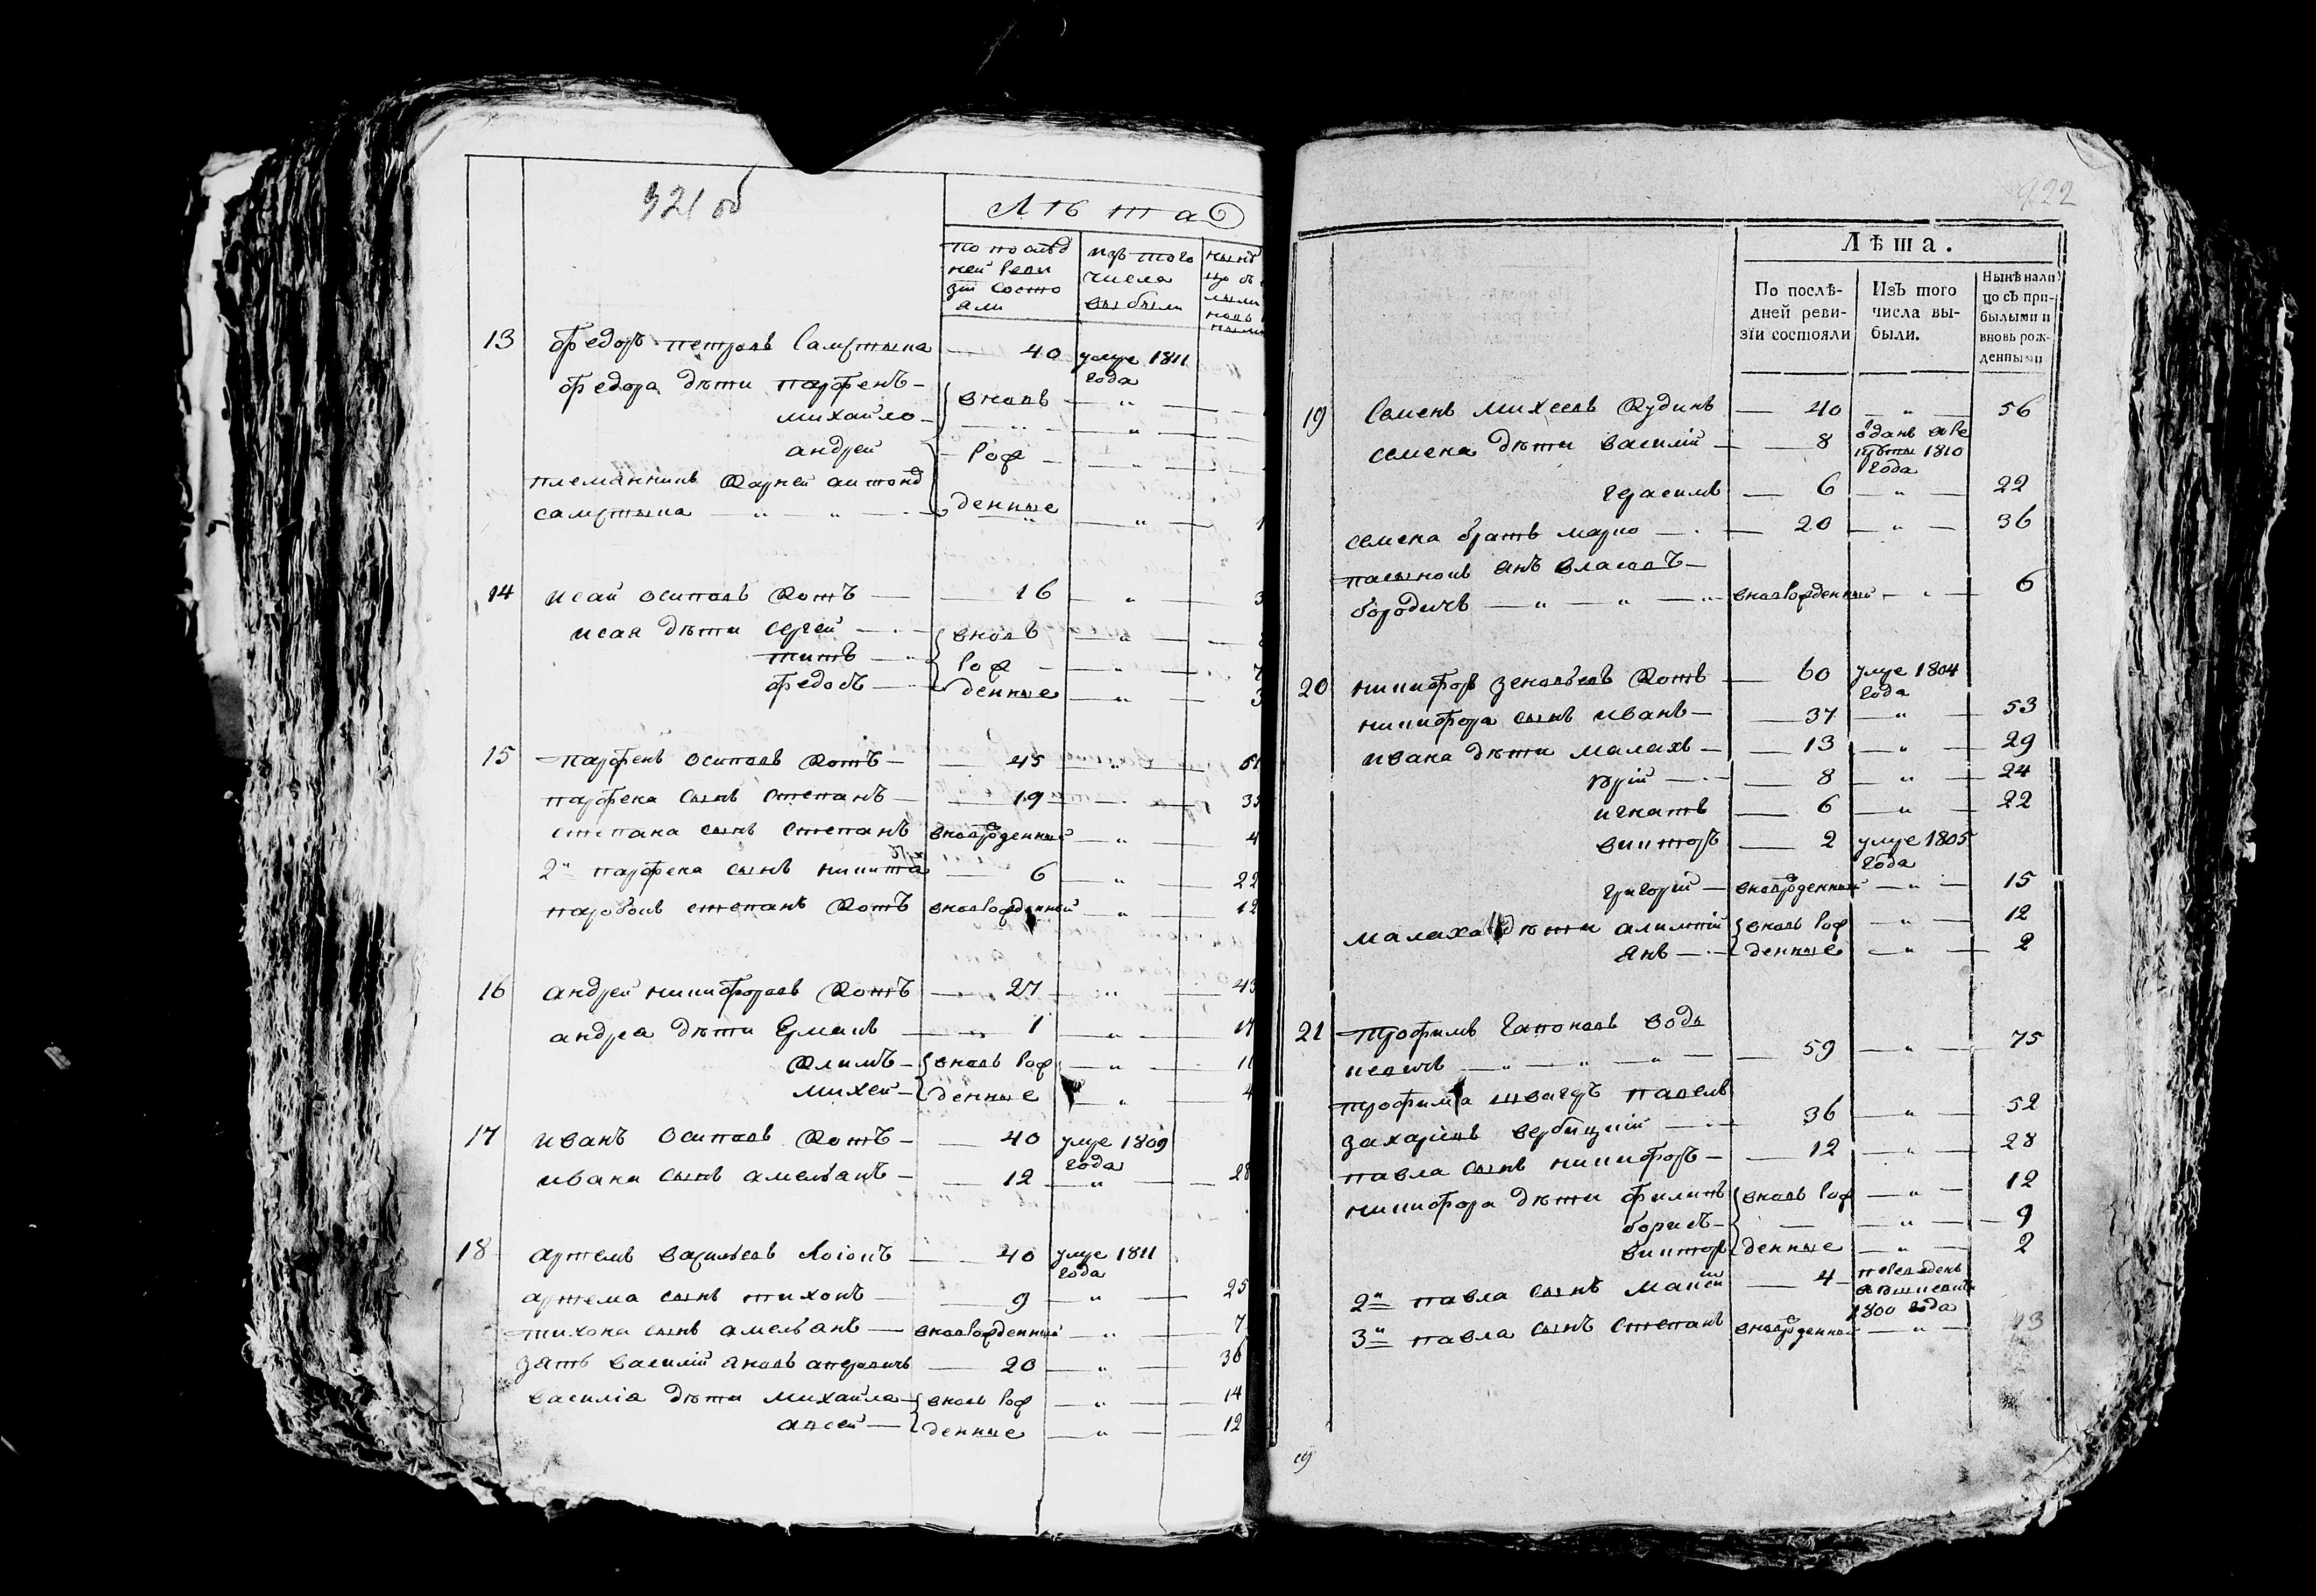 921 об
Лѣта
по послѣд
ней реви
зіи состо
яли
изъ того
числа
выбыли
нынѣ
13 Федоръ петровъ — 40 умре 1811
года
федора дѣти парфенъ — вновь — " —
михайло — " —
андрей рож — " —
племянникъ Карней
денные — " — 1
14 исай осиповъ Котъ — 16 — " — 3
исая дѣти сергей — вновь — " —
титъ — рож — " — 7
федосъ — денные — " — 3
15 парфенъ осиповъ Котъ — 45 — " — 61
парфена сынъ степанъ — 19 — " — 35
степана сынъ степанъ вноврожденный — " — 4
2й парфена сынъ никита — 6 — " — 22
степанъ Котъ вноврожденный — " — 12
16 андрей никифоровъ Котъ — 27 — " — 43
андрея дѣти — 1 — " — 17
Климъ — вновь рож — " — 11
михей — денные — " — 4
17 иванъ осиповъ Котъ — 40 умре 1809
года
ивана сынъ амельянъ — 12 — " — 28
18 артемъ васильевъ — 40 умре 1811
года
артема сынъ тихонъ — 9 — " — 25
тихона сынъ амельянъ — вноврожденный — " — 7
зять василій — 20 — " — 36
василія дѣти михайла — вновь рож — " — 14
— денные — " — 12
922
Лѣта.
По послѣ-
дней реви-
зіи состояли
Изъ того
числа вы-
были.
Нынѣ нали
цо съ при-
былыми и
вновь рож-
денными
19 семенъ михеевъ Кудинъ — 40 — " — 56
семена дѣти василій — 8 Оданъ в ре
круты 1810
года
герасимъ — 6 — " — 22
семена братъ марко — 20 — " — 36
пасынокъ
— " — " — вноврожденный — " — 6
20 никифоръ зеновьевъ Котъ — 60 умре 1804
года
никифора сынъ иванъ — 37 — " — 53
ивана дѣти малахъ — 13 — " — 29
юрій — 8 — " — 24
игнатъ — 6 — " — 22
викторъ — 2 умре 1805
года
григорій — вноврожденный — " — 15
малаха дѣти алимпій вновь рож — " — 12
янъ — денные — " — 2
21 трофимъ
— " — " — 59 — " — 75
трофима швагеръ павелъ
захаріевъ вербицкій — 36 — " — 52
павла сынъ никифоръ — 12 — " — 28
никифора дѣти филипъ вновь рож — " — 12
борисъ — " — 9
викторъ денные — " — 2
2й павла сынъ — 4
1800 года
3й павла сынъ степанъ вноврожденный — " — 13
19